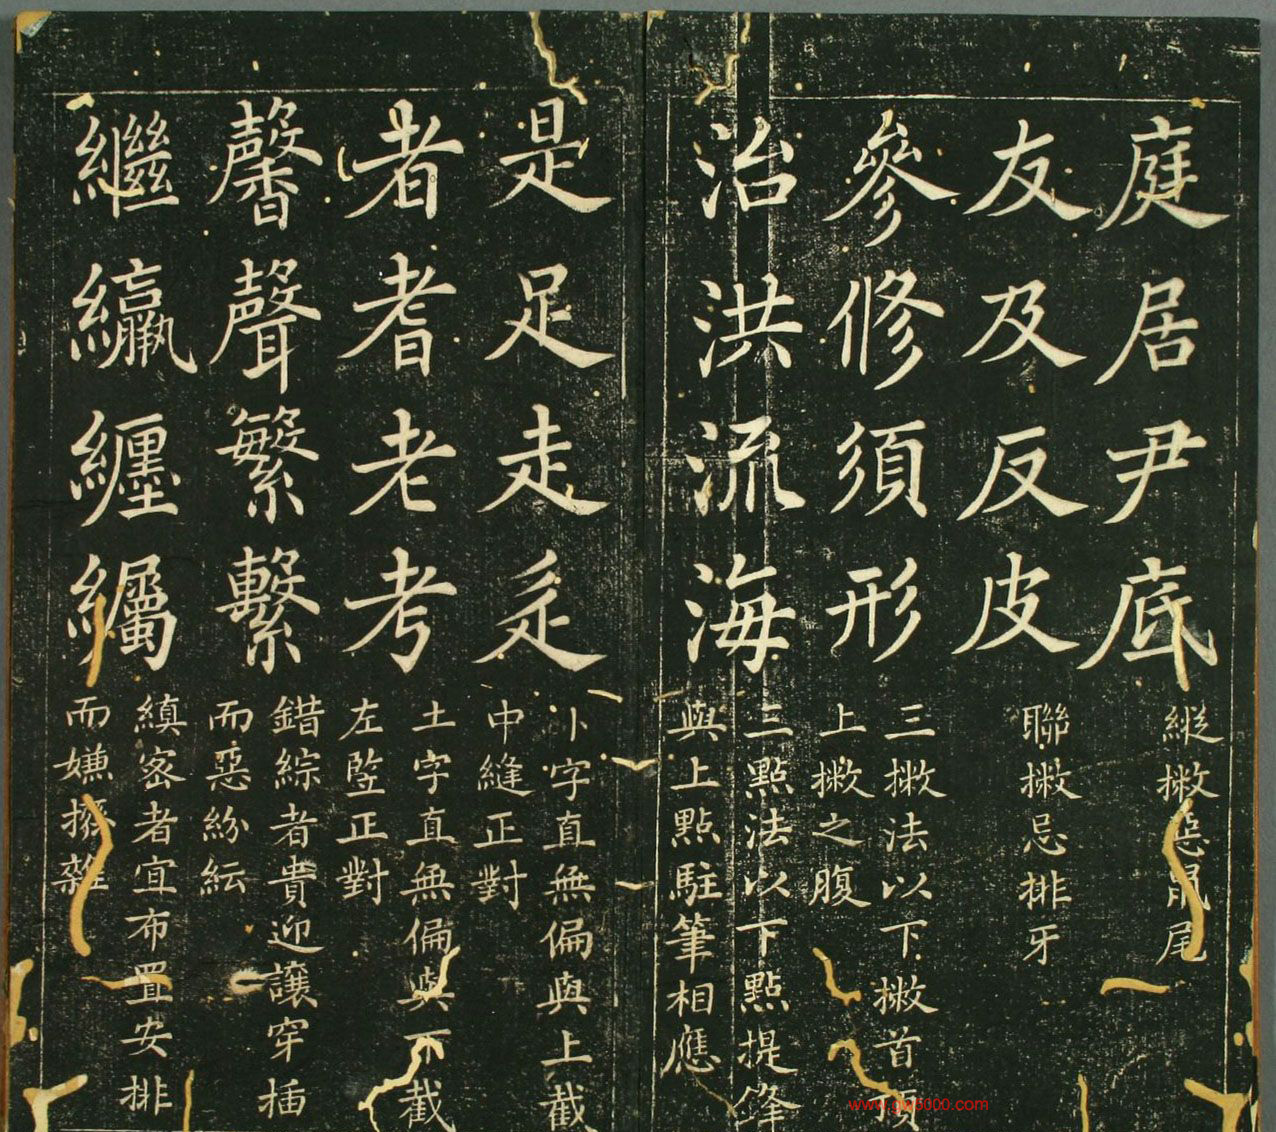 庭居尹底
縱撇惡鼠尾
友及反皮
聯撇忌排牙
參修須形
三撇法以下撇首
上撇之腹
治洪流海
三點法以下點提鋒
與上點駐筆相應
是足走辵
卜字直無偏與上截
中縫正對
者耆老考
土字直無偏與下截
左竪正對
馨聲繁繫
錯綜者貴迎讓穿插
而惡紛紜
繼纏纊
縝密者宜布置安排
而嫌擁雜
www.gm5000.com